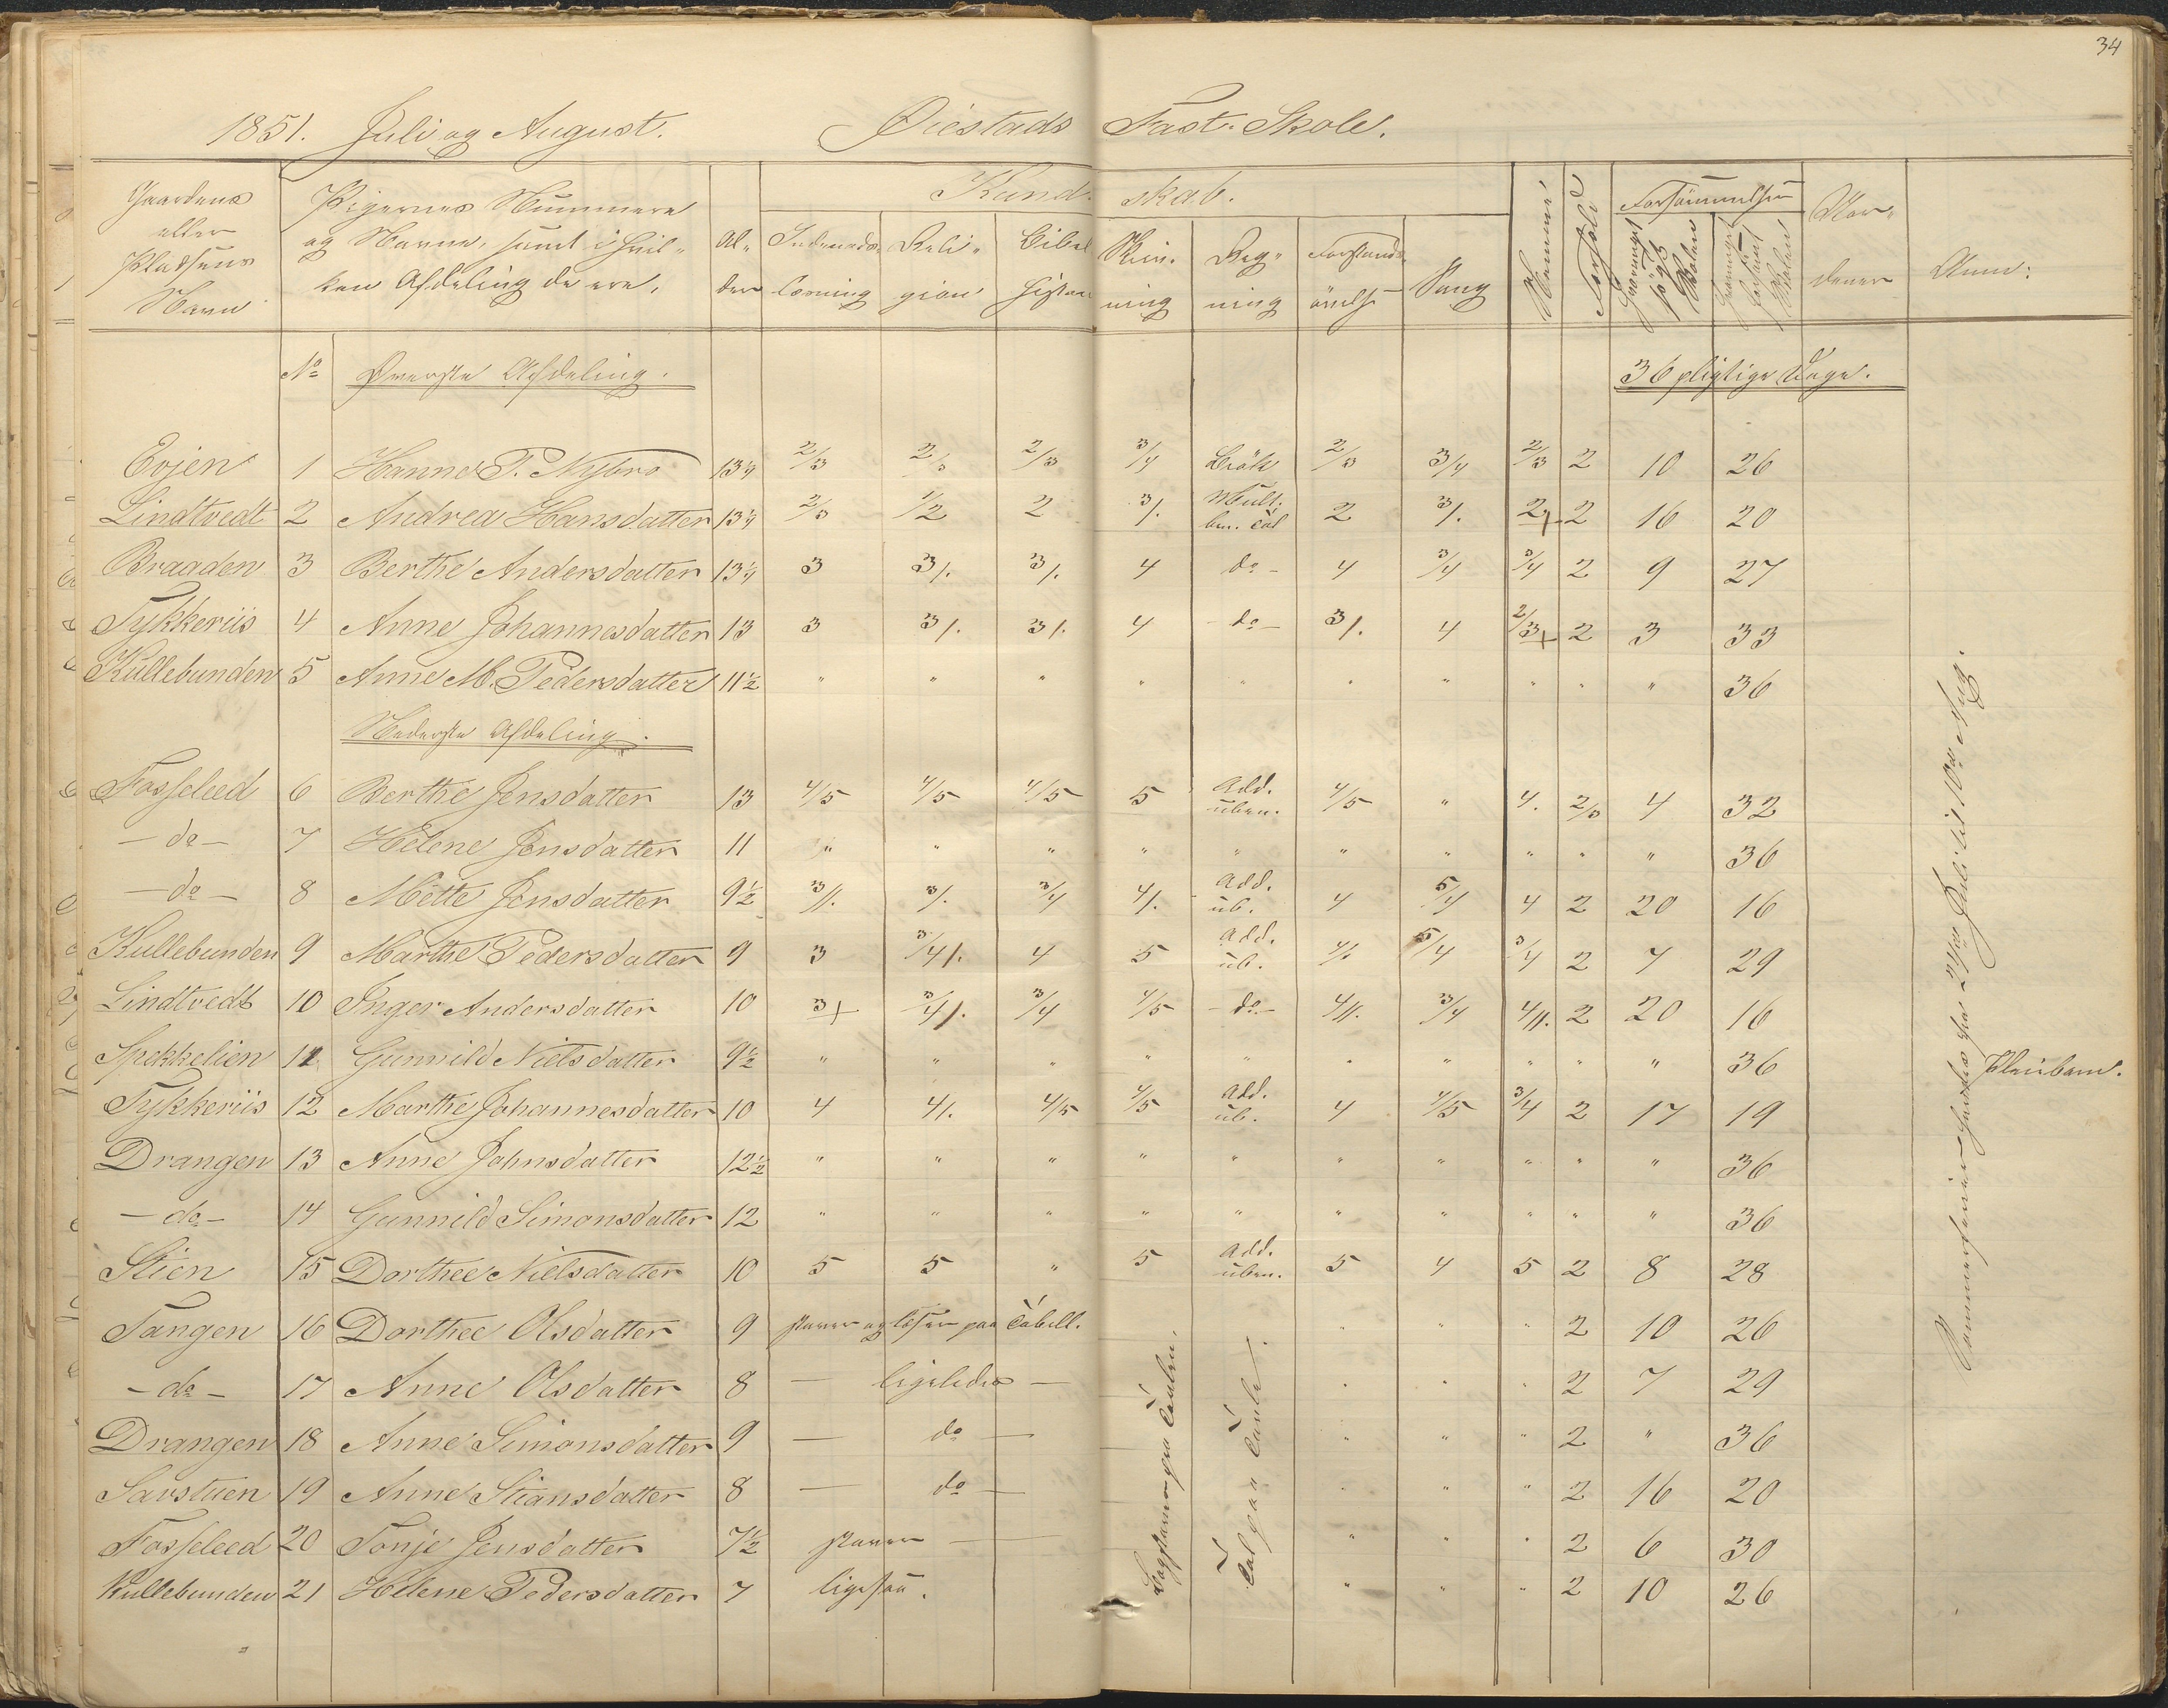 34
1851. Juli og August. Øiestads Fast-Skole.
Gaardens eller Pladsens Navn
Pigernes Nummere og Navne, samt i hvilken Afdeling de ere.
Alder
Kundskab.
Indenadslæsning
Religion
Bibelhistorie
Skrivning
Regning
Forstandsøvelse
Sang
Nemme
Forhold
Forsømmelser
Skolen
Skolen
Anm:
No Øverste Afdeling. 36 pligtige Dage.
Evjen 1 Hanne P. Nybro 13¼ 2/3 2/3 2/3 3/4 Brök 2/3 3/4 2/3 2 10 26
Lindtvedt 2 Andrea Hansdatter 13¼ 2/3 1/2 2 3/. Mult. ben. Tal 2 3/. 2+ 2 16 20
Braaden 3 Berthe Andersdatter 13¼ 3 3/. 3/. 4 do - 4 3/4 3/4 2 9 27
Tykkeriis 4 Anne Johannesdatter 13 3 3/. 3/. 4 - do - 3/. 4 2/3+ 2 3 33
Kullebunden 5 Anne M. Pedersdatter 11½ " " " " " " " " " " 36
Nederste Afdeling.
Fosseleed 6 Berthe Jensdatter 13 4/5 4/5 4/5 5 Add. uben. 4/5 " 4. 2/3 4 32
- do - 7 Helene Jensdatter 11 " " " " " " " " " " 36
- do - 8 Mette Jensdatter 9½ 3//. 3/. 3/4 4/. Add. ub. 4 5/4 4 2 20 16
Kullebunden 9 Marthe Pedersdatter 9 3 3/4/. 4 5 Add. ub. 4/. 5/4 3/4 2 7 29
Lindtvedt 10 Inger Andersdatter 10 3+ 3/4/. 3/4 4/5 - do - 4//. 3/4 4//. 2 20 16
Spekkelien 11 Gunnild Nielsdatter 9½ " " " " " " " " " " 36 Pleiebarn.
Tykkeriis 12 Marthe Johannesdatter 10 4 4/. 4/5 4/5 Add. ub. 4 4/5 3/4 2 17 19
Drangen 13 Anne Johnsdatter 12½ " " " " " " " " " " 36
- do - 14 Gunnild Simonsdatter 12 " " " " " " " " " " 36
Stien 15 Dorthee Nielsdatter 10 5 5 " 5 Add. uben. 5 4 5 2 8 28
Tangen 16 Dorthee Olsdatter 9 staver og læser paa Tabell. " " " 2 10 26
- do - 17 Anne Olsdatter 8 — ligeledes — " " " 2 7 29
Drangen 18 Anne Simonsdatter 9 — do — " " " 2 " 36
Savstuen 19 Anne Stiansdatter 8 — do — " " " 2 16 20
Fosseleed 20 Tonje Jensdatter 7½ staver — " " " 2 6 30
Kullebunden 21 Helene Pedersdatter 7 ligesaa. " " " 2 10 26
Bogstaver paa Tavlen.
Tal paa Tavle.
Sommerferier havdes fra 21de Juli til 10de Aug.